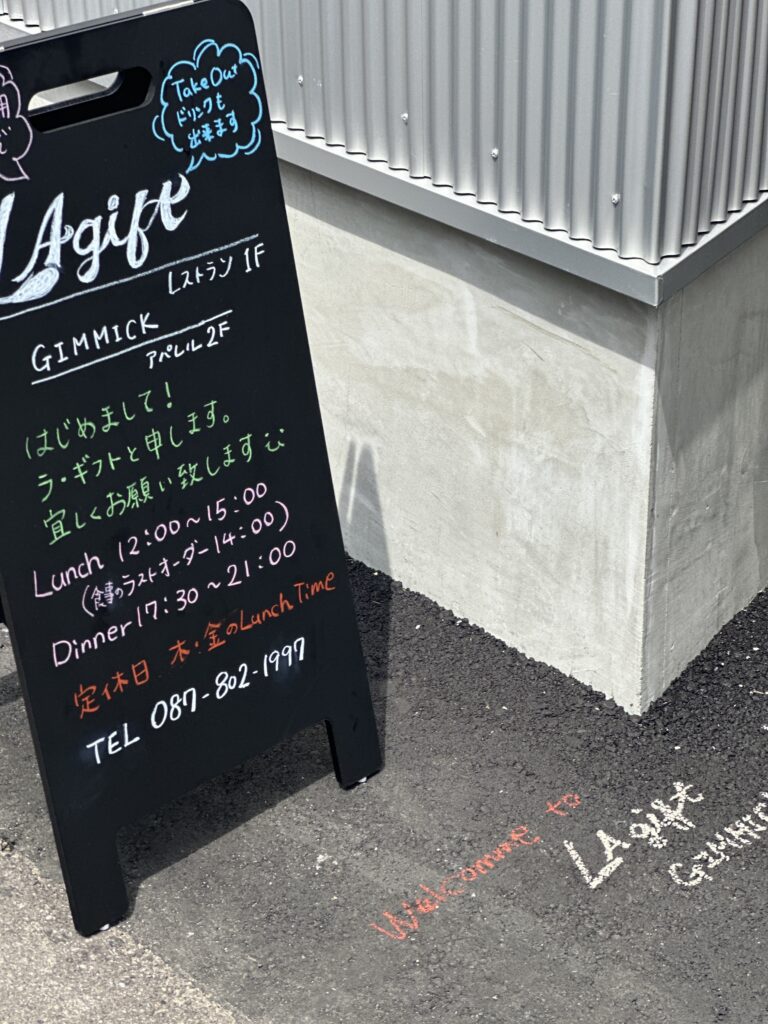 Take Out
ドリンクも
出来ます
LAgift
レストラン 1F
GIMMICK
アパレル 2F
はじめまして!
ラ・ギフトと申します。
宜しくお願い致します
Lunch 12:00~15:00
(食事のラストオーダー14:00)
Dinner 17:30~21:00
定休日 木・金のLunch Time
TEL 087-802-1997
Welcomme to
LAgift
GIMMICK